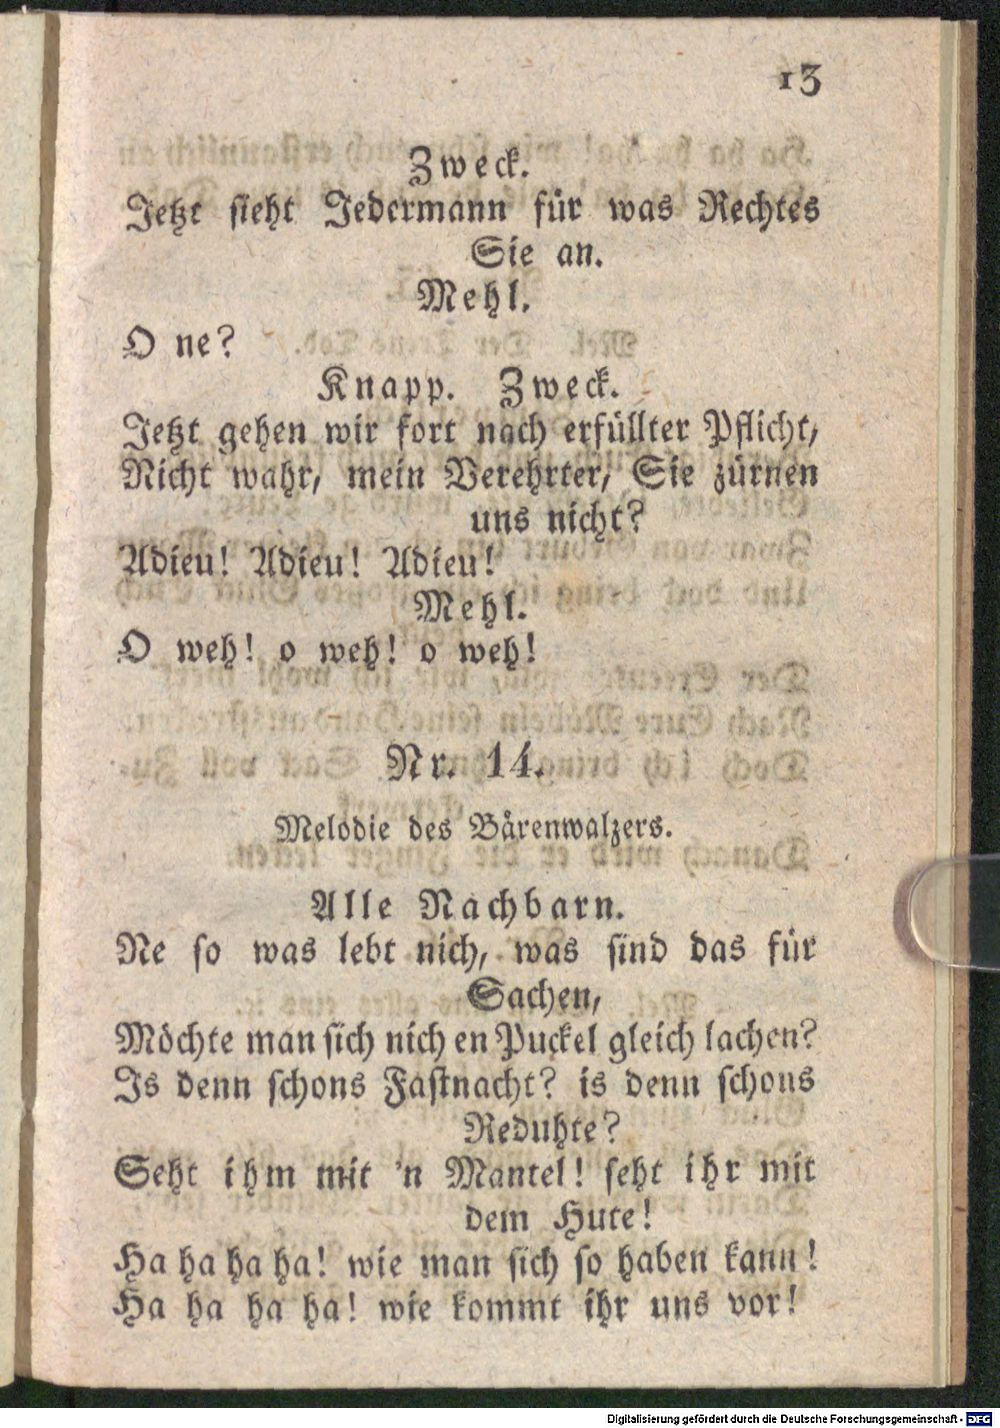 13
Zweck.
Jetzt sieht Jedermann für was Rechtes
Sie an.
Mehl.
O ne?
Knapp. Zweck.
Jetzt gehen wir fort nach erfüllter Pflicht,
Nicht wahr, mein Verehrter, Sie zürnen
uns nicht?
Adieu! Adieu! Adieu!
Mehl.
O weh! o weh! o weh!
Nr. 14.
Melodie des Bärenwalzers.
Alle Nachbarn.
Ne so was lebt nich, was sind das für
Sachen,
Möchte man sich nich en Puckel gleich lachen?
Is denn schons Fastnacht? is denn schons
Reduhte?
Seht ihm mit 'n Mantel! seht ihr mit
dem Hute!
Ha ha ha ha! wie man sich so haben kann!
Ha ha ha ha! wie kommt ihr uns vor!
Digitalisierung gefördert durch die Deutsche Forschungsgemeinschaft - DFG